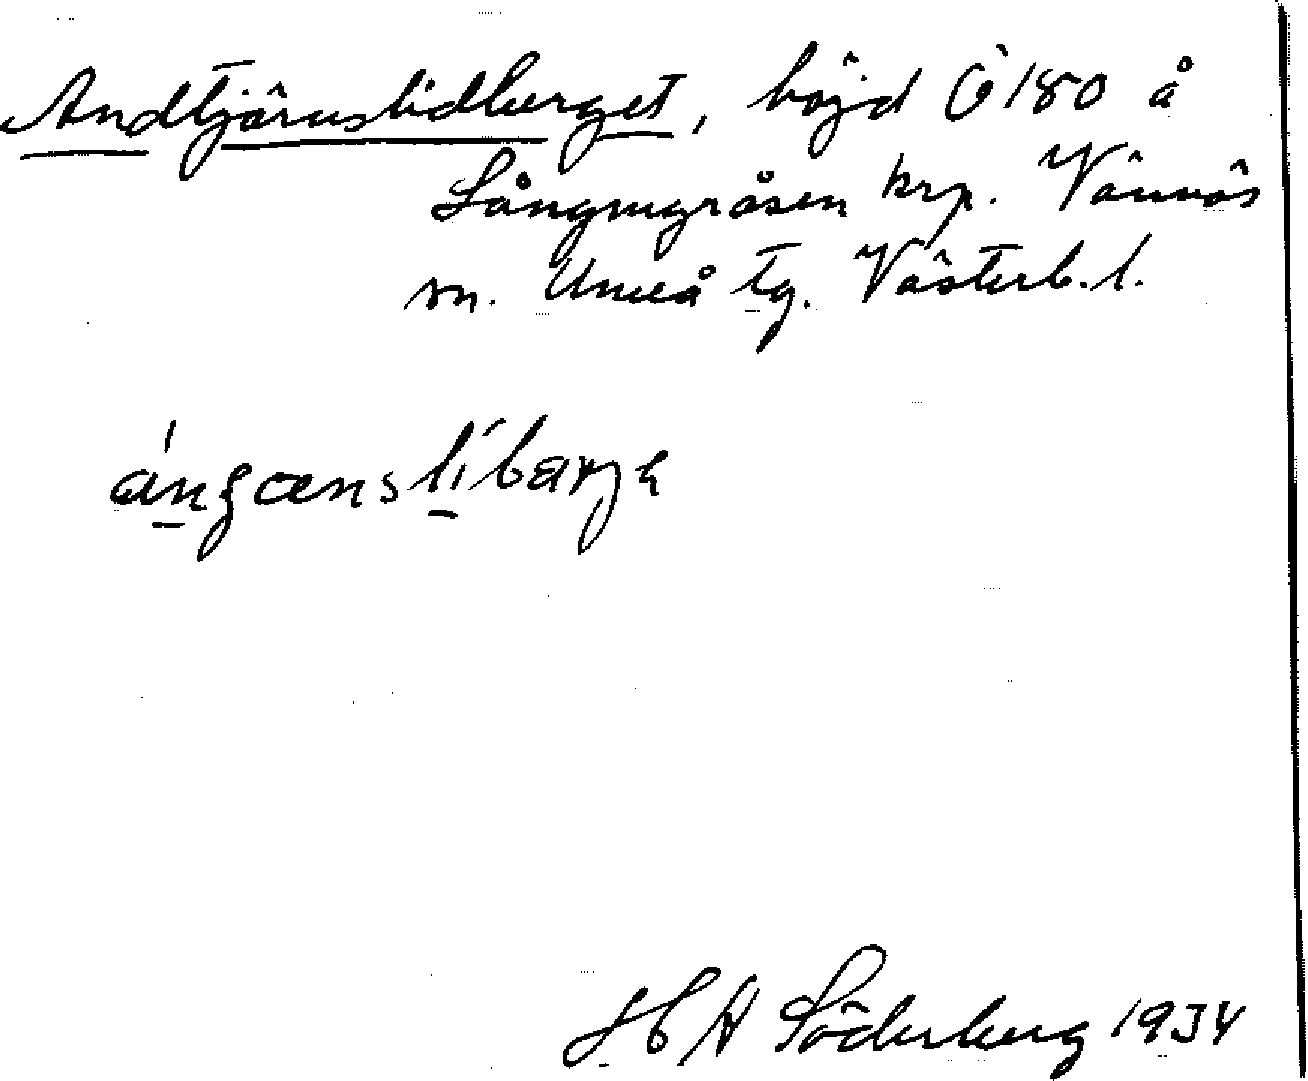 Andtjärnslidberget, höjd Ö 180 å
Långmyråsen krp. Vännäs
sn. Umeå tg. Västerb. l.
J E A Söderberg 1934